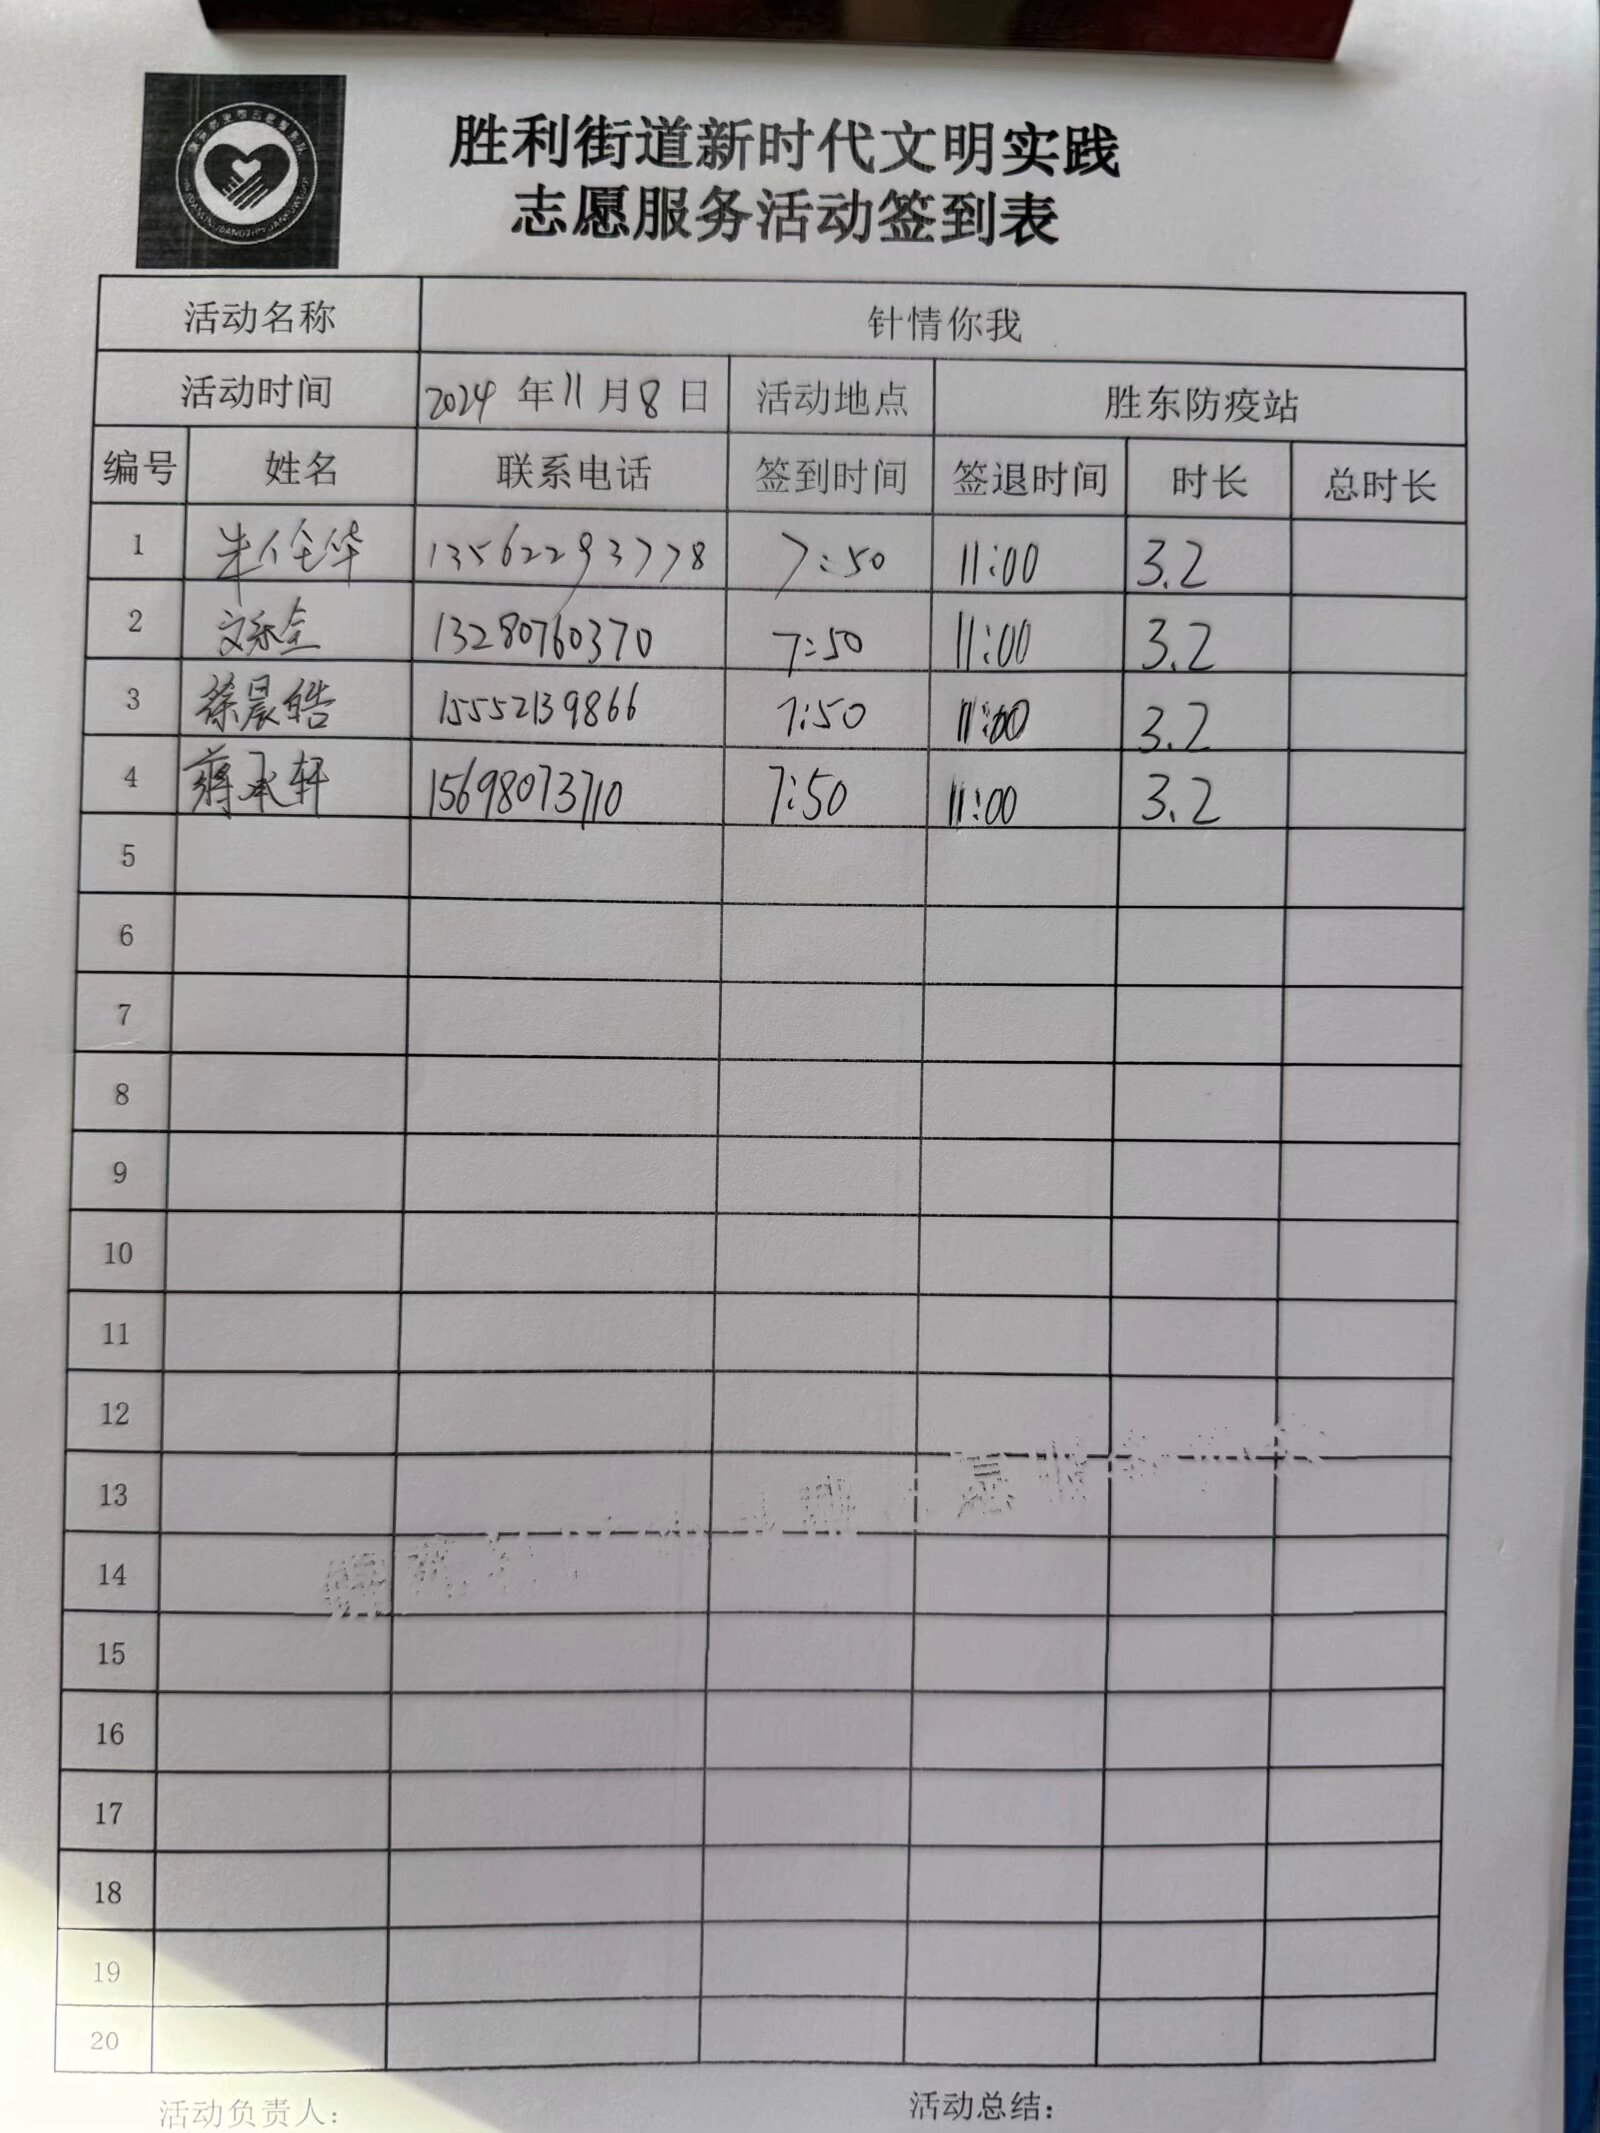 胜利街道新时代文明实践
志愿服务活动签到表
活动名称 针情你我
活动时间 2024 年 11 月 8 日 活动地点 胜东防疫站
编号 姓名 联系电话 签到时间 签退时间 时长 总时长
1 朱全华 13562293778 7:50 11:00 3.2
2 13280760370 7:50 11:00 3.2
3 徐晨皓 15552139866 7:50 11:00 3.2
4 蒋承轩 15698073710 7:50 11:00 3.2
5
6
7
8
9
10
11
12
13
14
15
16
17
18
19
20
活动负责人: 活动总结: